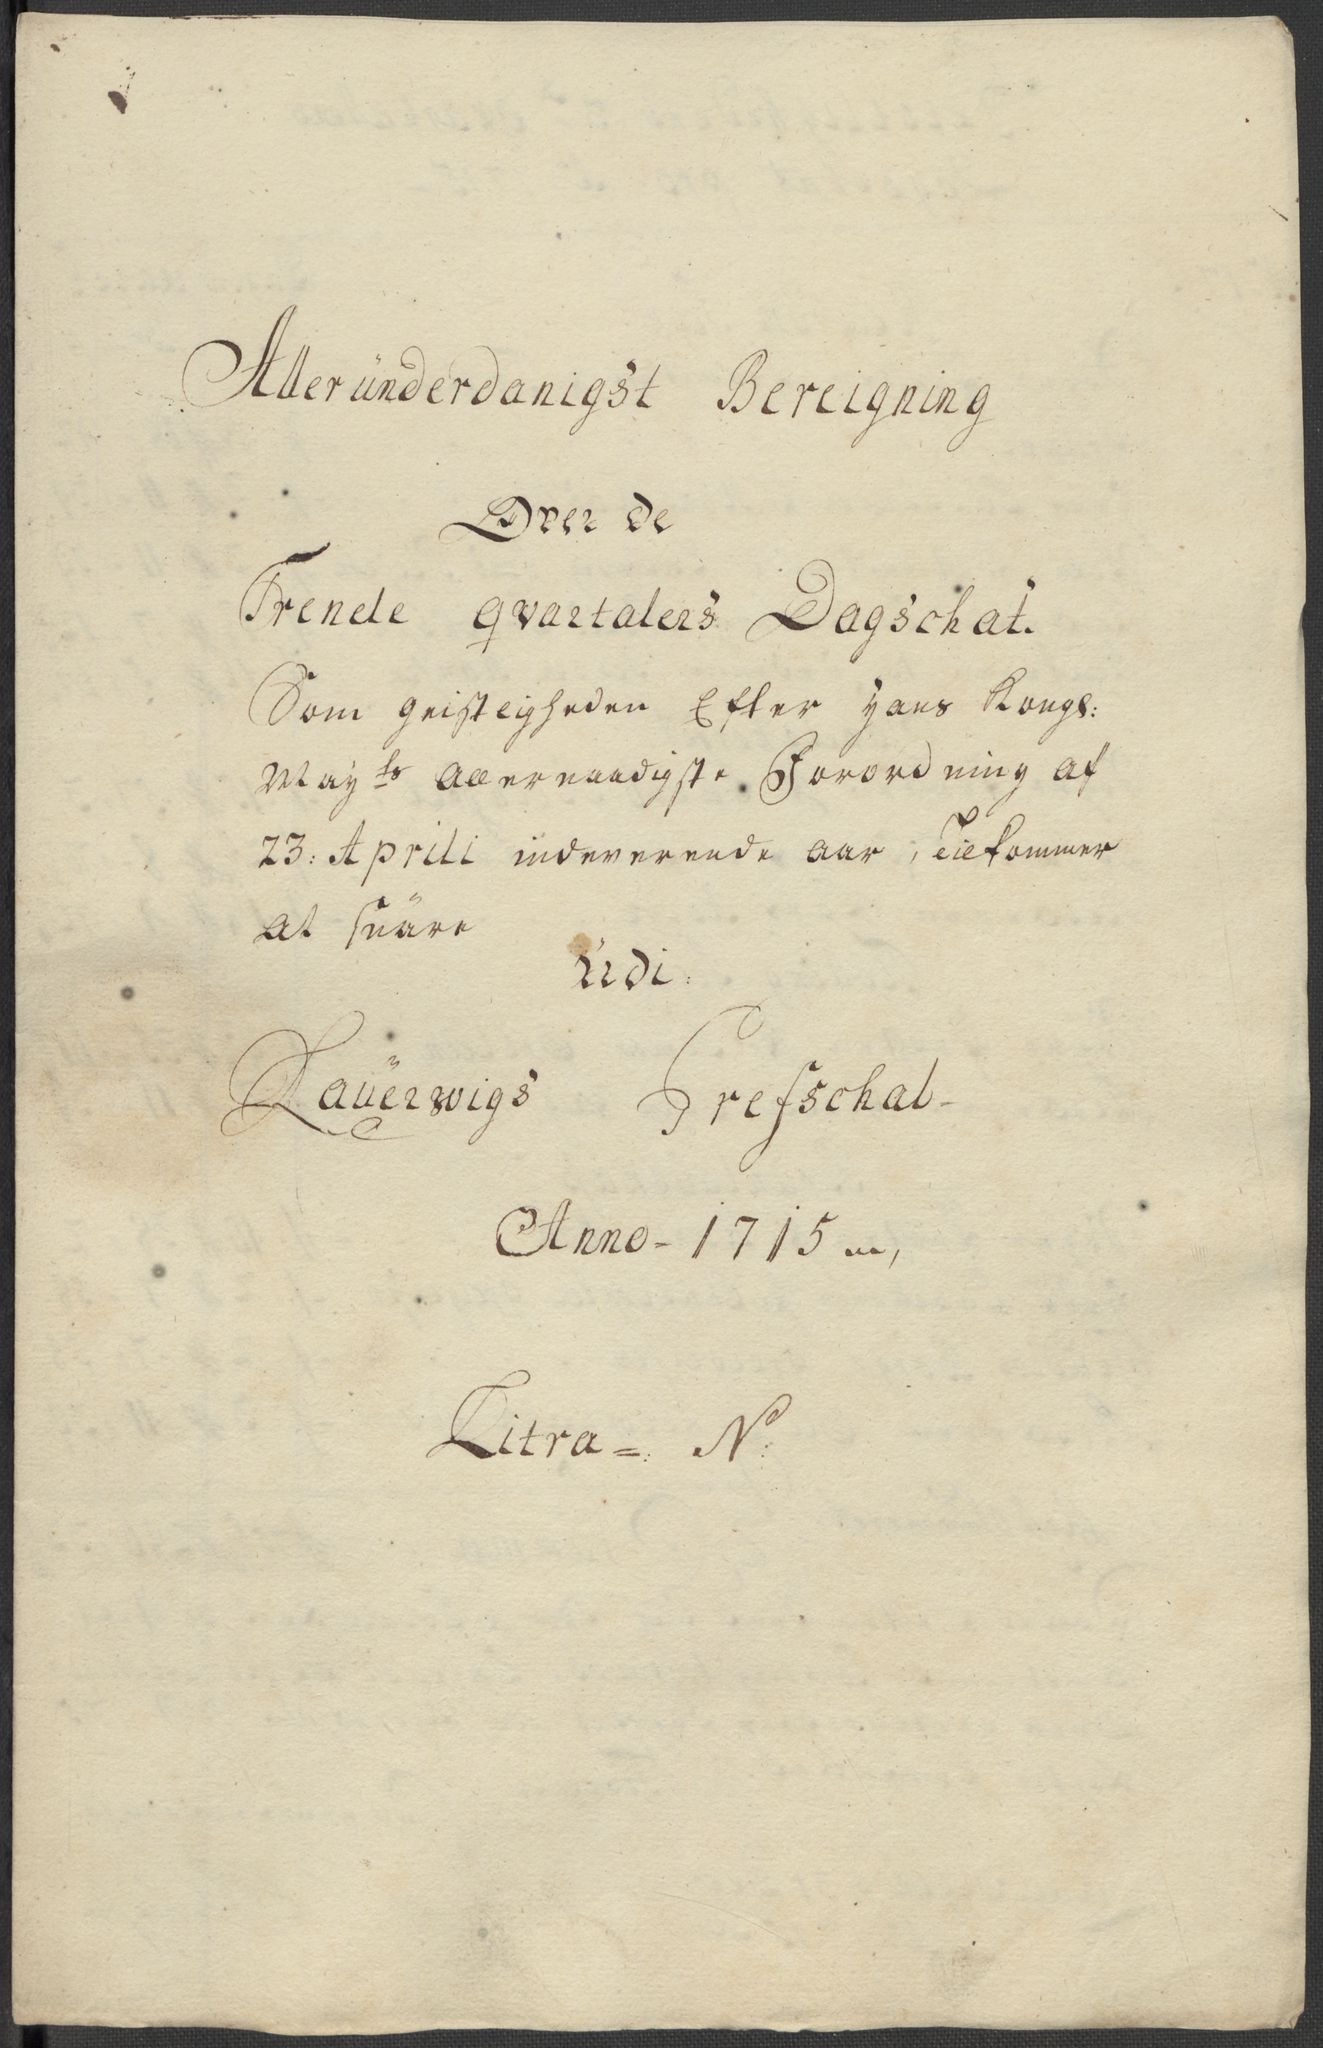 Alleründerdanigst Bereigning
Over de
Trende qvartalers Dagschat.
Som geistligheden Efter hans Kongl:
May^ts allernaadigste Forordning af
23: Aprili indeverende aar, Tilkommer
at suare
Udi:
Lauerwigs Grefschab-
Anno - 1715
Litra =: N^o: